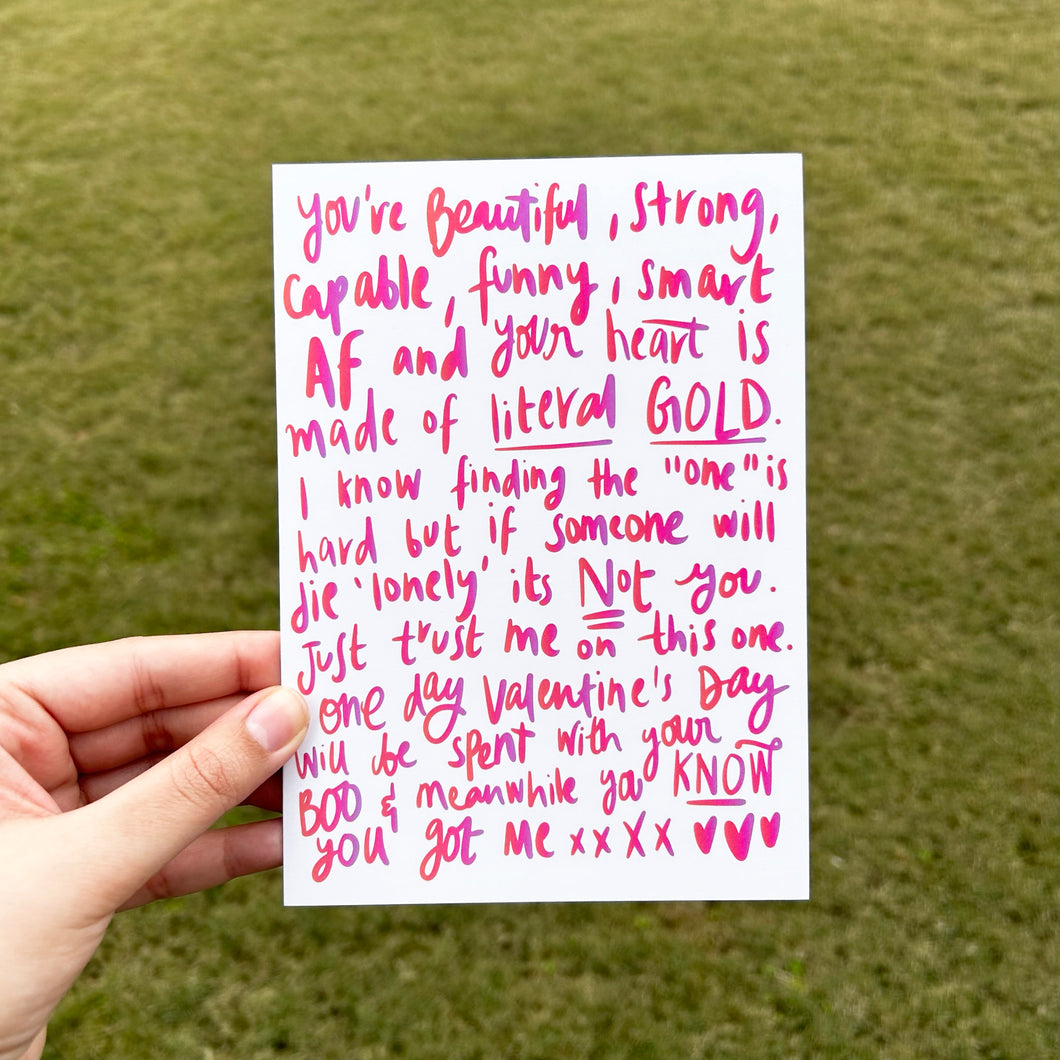 you're Beautiful, strong,
capable, funny, smart
AF and your heart is
made of literal GOLD.
I know finding the "one" is
hard but if someone will
die 'lonely' its Not you.
Just trust me on this one.
one day Valentine's Day
will be spent with your
BOO & meanwhile you KNOW
you got me xxXx ♥♥♥